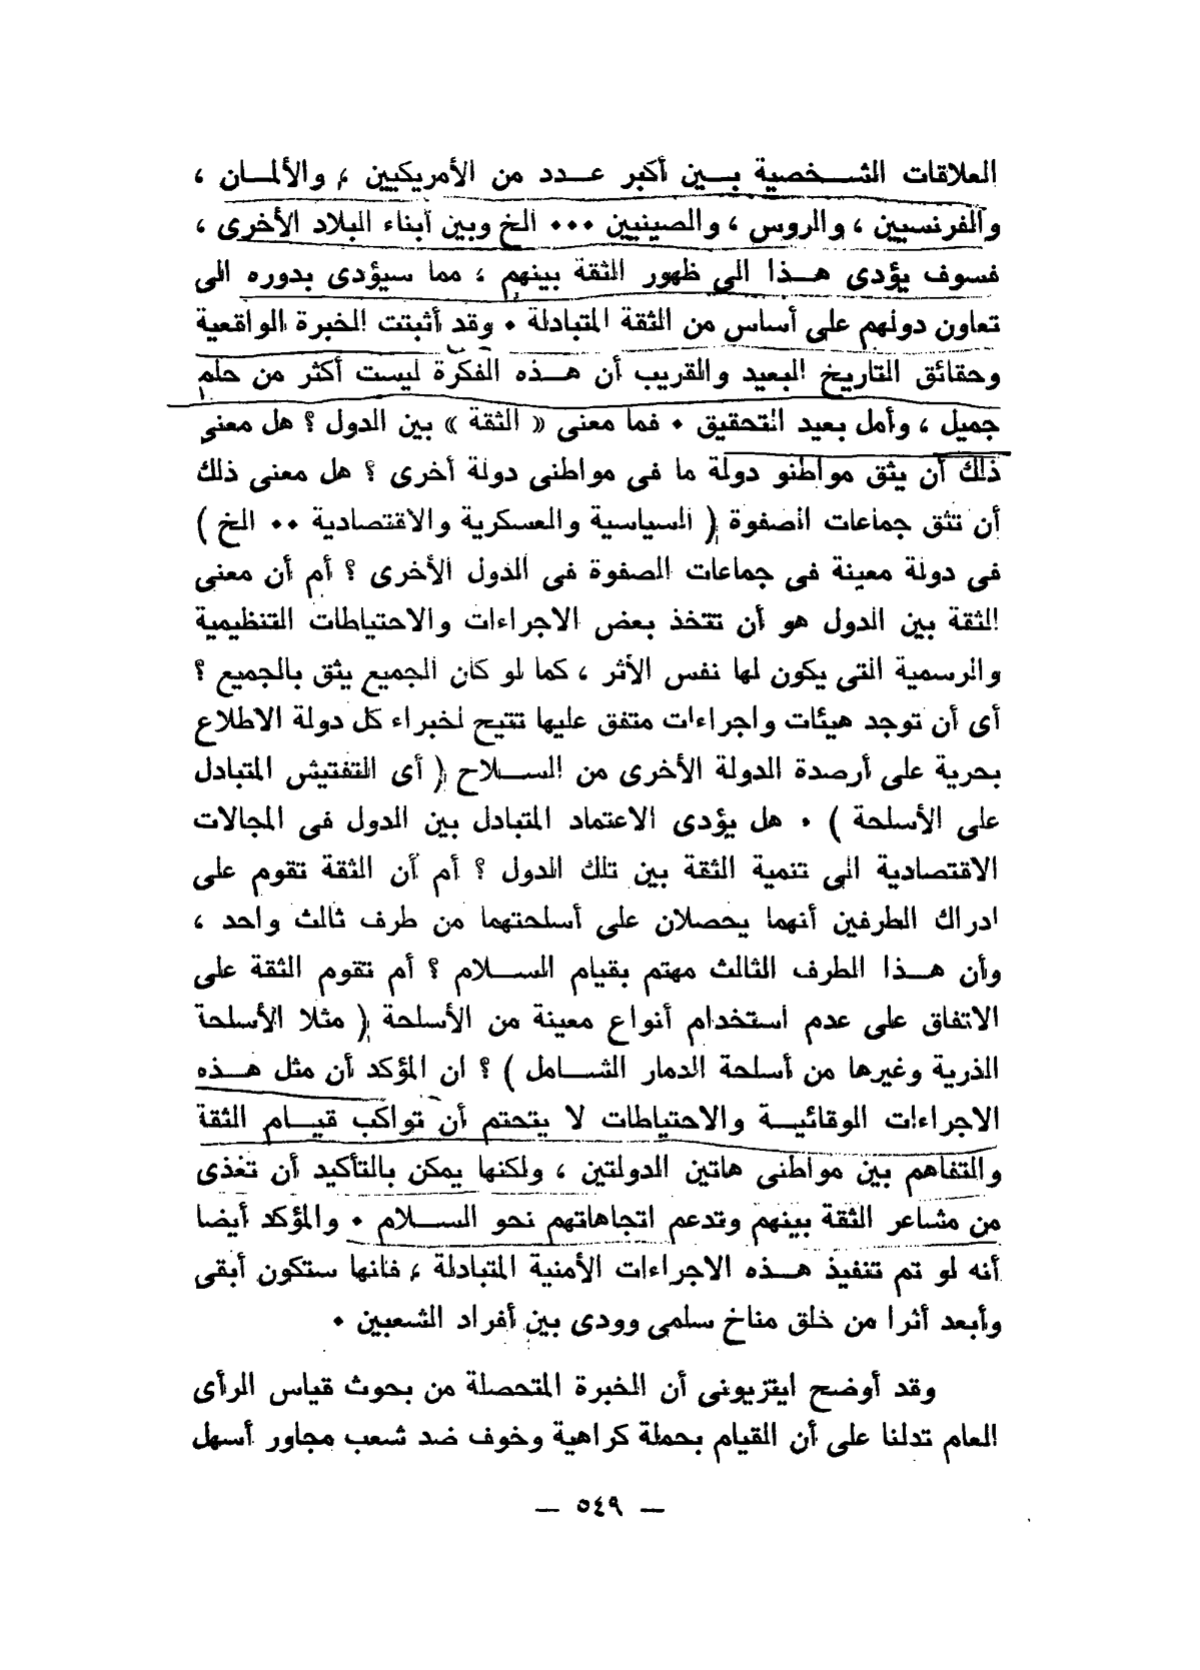 العلاقات الشخصية بين أكبر عدد من الأمريكيين ، والألمان ،
والفرنسيين ، والروس ، والصينيين ... الخ وبين أبناء البلاد الأخرى ،
فسوف يؤدى هذا الى ظهور الثقة بينهم ، مما سيؤدى بدوره الى
تعاون دولهم على أساس من الثقة المتبادلة . وقد أثبتت الخبرة الواقعية
وحقائق التاريخ البعيد والقريب أن هذه الفكرة ليست أكثر من حلم
جميل ، وأمل بعيد التحقيق . فما معنى « الثقة » بين الدول ؟ هل معنى
ذلك أن يثق مواطنو دولة ما فى مواطنى دولة أخرى ؟ هل معنى ذلك
أن تثق جماعات الصفوة ( السياسية والعسكرية والاقتصادية .. الخ )
فى دولة معينة فى جماعات الصفوة فى الدول الأخرى ؟ أم أن معنى
الثقة بين الدول هو أن تتخذ بعض الاجراءات والاحتياطات التنظيمية
والرسمية التى يكون لها نفس الأثر ، كما لو كان الجميع يثق بالجميع ؟
أى أن توجد هيئات واجراءات متفق عليها تتيح لخبراء كل دولة الاطلاع
بحرية على أرصدة الدولة الأخرى من السلاح ( أى التفتيش المتبادل
على الأسلحة ) . هل يؤدى الاعتماد المتبادل بين الدول فى المجالات
الاقتصادية الى تنمية الثقة بين تلك الدول ؟ أم أن الثقة تقوم على
ادراك الطرفين أنهما يحصلان على أسلحتهما من طرف ثالث واحد ،
وأن هذا الطرف الثالث مهتم بقيام السلام ؟ أم تقوم الثقة على
الاتفاق على عدم استخدام أنواع معينة من الأسلحة ( مثلا الأسلحة
الذرية وغيرها من أسلحة الدمار الشامل ) ؟ ان المؤكد أن مثل هذه
الاجراءات الوقائية والاحتياطات لا يتحتم أن تواكب قيام الثقة
والتفاهم بين مواطنى هاتين الدولتين ، ولكنها يمكن بالتأكيد أن تغذى
من مشاعر الثقة بينهم وتدعم اتجاهاتهم نحو السلام . والمؤكد أيضا
أنه لو تم تنفيذ هذه الاجراءات الأمنية المتبادلة ، فانها ستكون أبقى
وأبعد أثرا من خلق مناخ سلمى وودى بين أفراد الشعبين .
وقد أوضح ايتزيونى أن الخبرة المتحصلة من بحوث قياس الرأى
العام تدلنا على أن القيام بحملة كراهية وخوف ضد شعب مجاور أسهل
— ٥٤٩ —